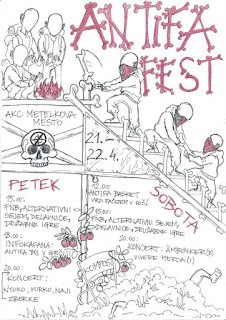 ANTIFA
FEST
AKC METELKOVA
MESTO
21.
22. 4.
PETEK
15.00:
FNB, ALTERNATIVNI
SEJEM, DELAVNICE,
DRUŽABNE IGRE
18.00:
INFOKAFANA:
ANTIFA BIH V
20.00:
KONCERT:
NTOKO, MIRKO, NAJI
ZBORKE
SOBOTA
12.00:
ANTIFA BASKET
VRZI FAŠIZEM V KOŠ!
15.00:
FNB, ALTERNATIVNI SEJEM,
DELAVNICE, DRUŽABNE IGRE
20.00:
KONCERT:
VIVERE MERDA (I)
KOMPOST